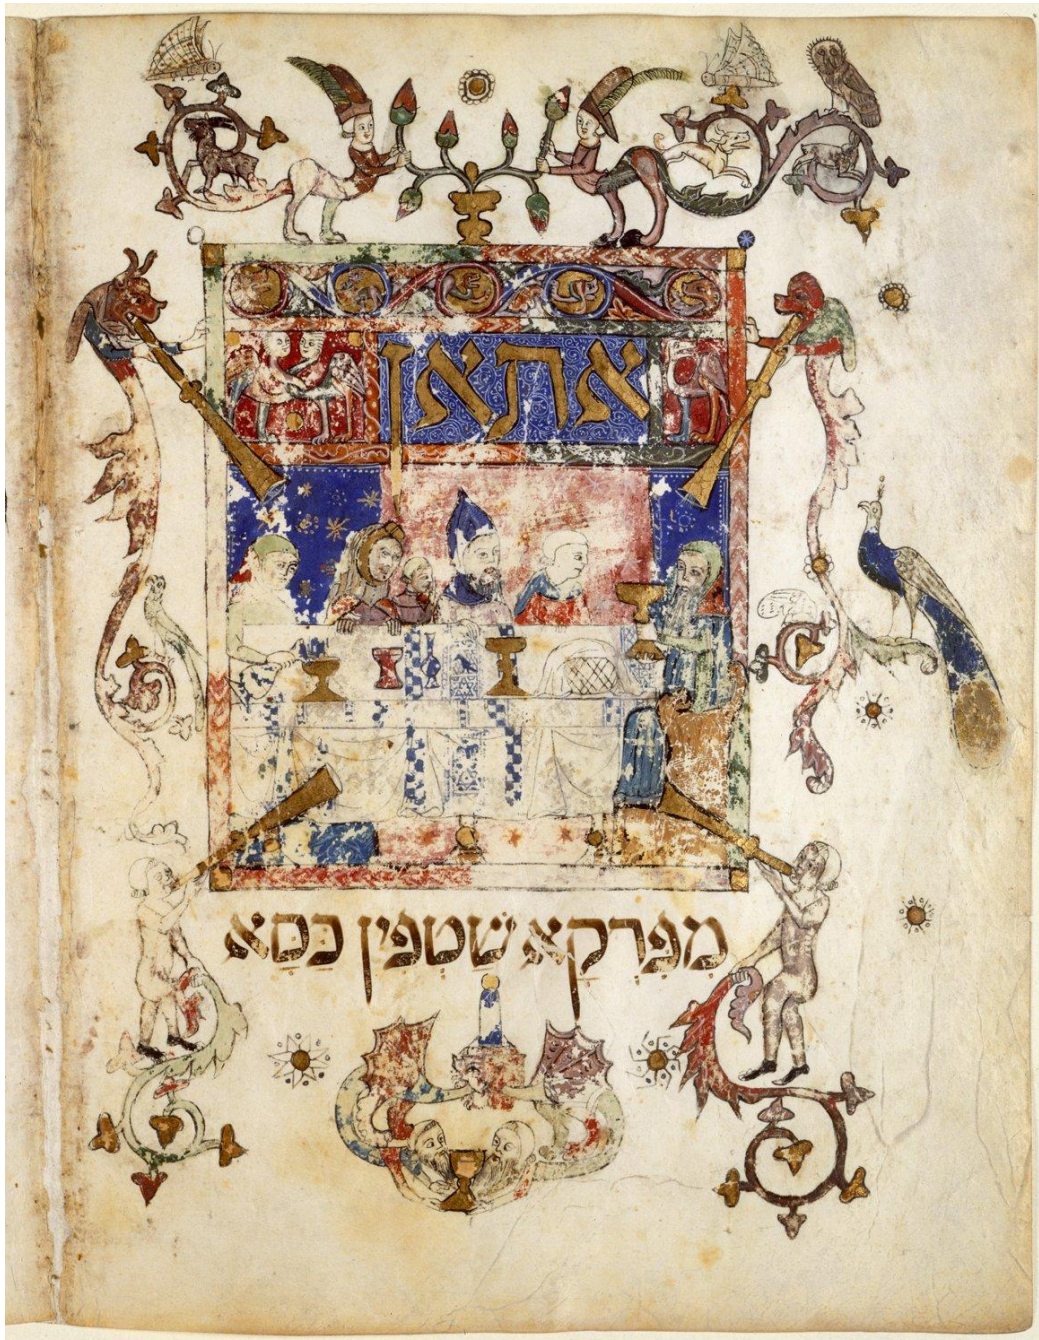 אתאן
מפרקא שטפין כסא